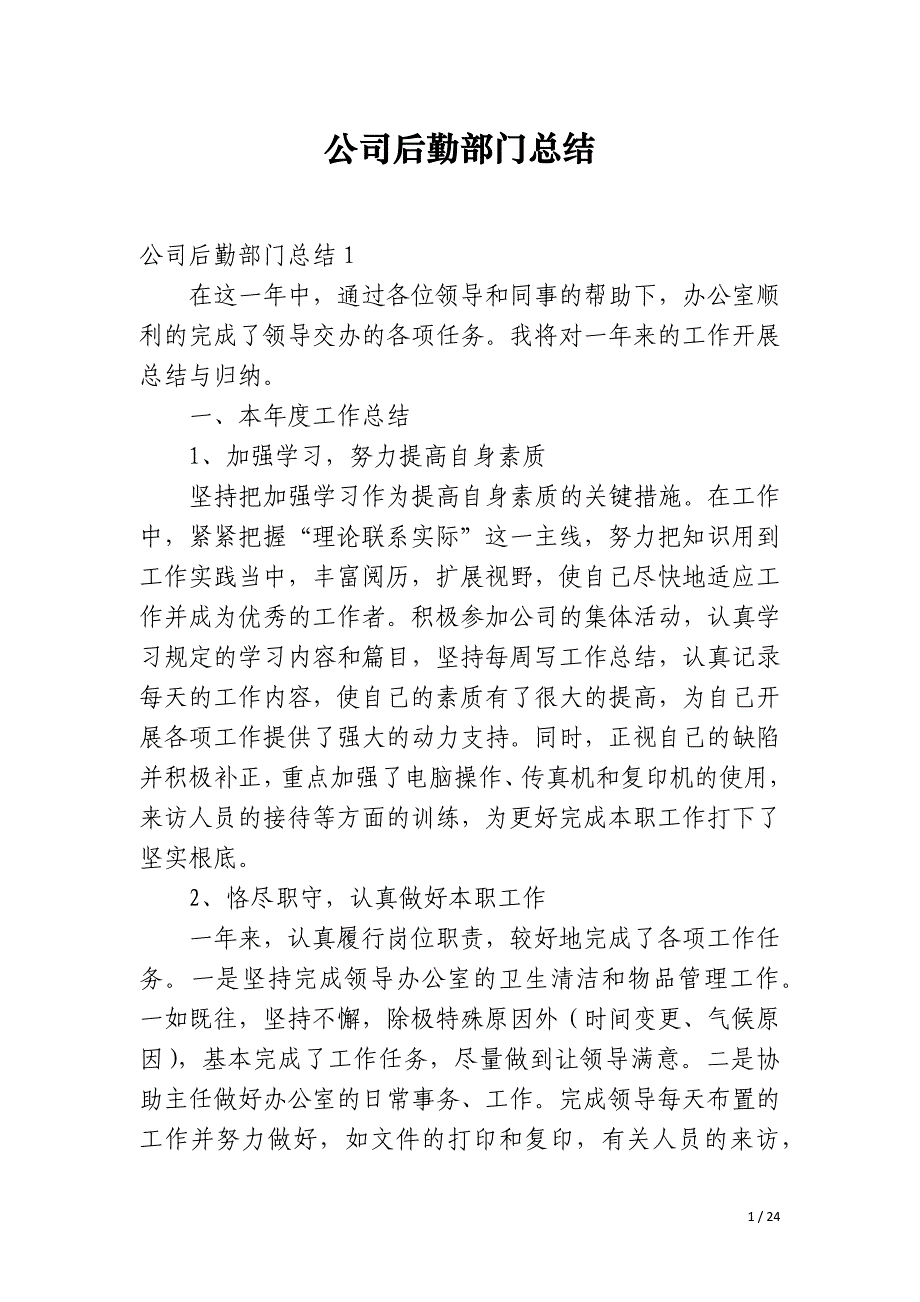 公司后勤部门总结
公司后勤部门总结 1
在这一年中，通过各位领导和同事的帮助下，办公室顺
利的完成了领导交办的各项任务。我将对一年来的工作开展
总结与归纳。
一、本年度工作总结
1、加强学习，努力提高自身素质
坚持把加强学习作为提高自身素质的关键措施。在工作
中，紧紧把握“理论联系实际”这一主线，努力把知识用到
工作实践当中，丰富阅历，扩展视野，使自己尽快地适应工
作并成为优秀的工作者。积极参加公司的集体活动，认真学
习规定的学习内容和篇目，坚持每周写工作总结，认真记录
每天的工作内容，使自己的素质有了很大的提高，为自己开
展各项工作提供了强大的动力支持。同时，正视自己的缺陷
并积极补正，重点加强了电脑操作、传真机和复印机的使用，
来访人员的接待等方面的训练，为更好完成本职工作打下了
坚实根底。
2、恪尽职守，认真做好本职工作
一年来，认真履行岗位职责，较好地完成了各项工作任
务。一是坚持完成领导办公室的卫生清洁和物品管理工作。
一如既往，坚持不懈，除极特殊原因外（时间变更、气候原
因），基本完成了工作任务，尽量做到让领导满意。二是协
助主任做好办公室的日常事务、工作。完成领导每天布置的
工作并努力做好，如文件的打印和复印，有关人员的来访，
1 / 24